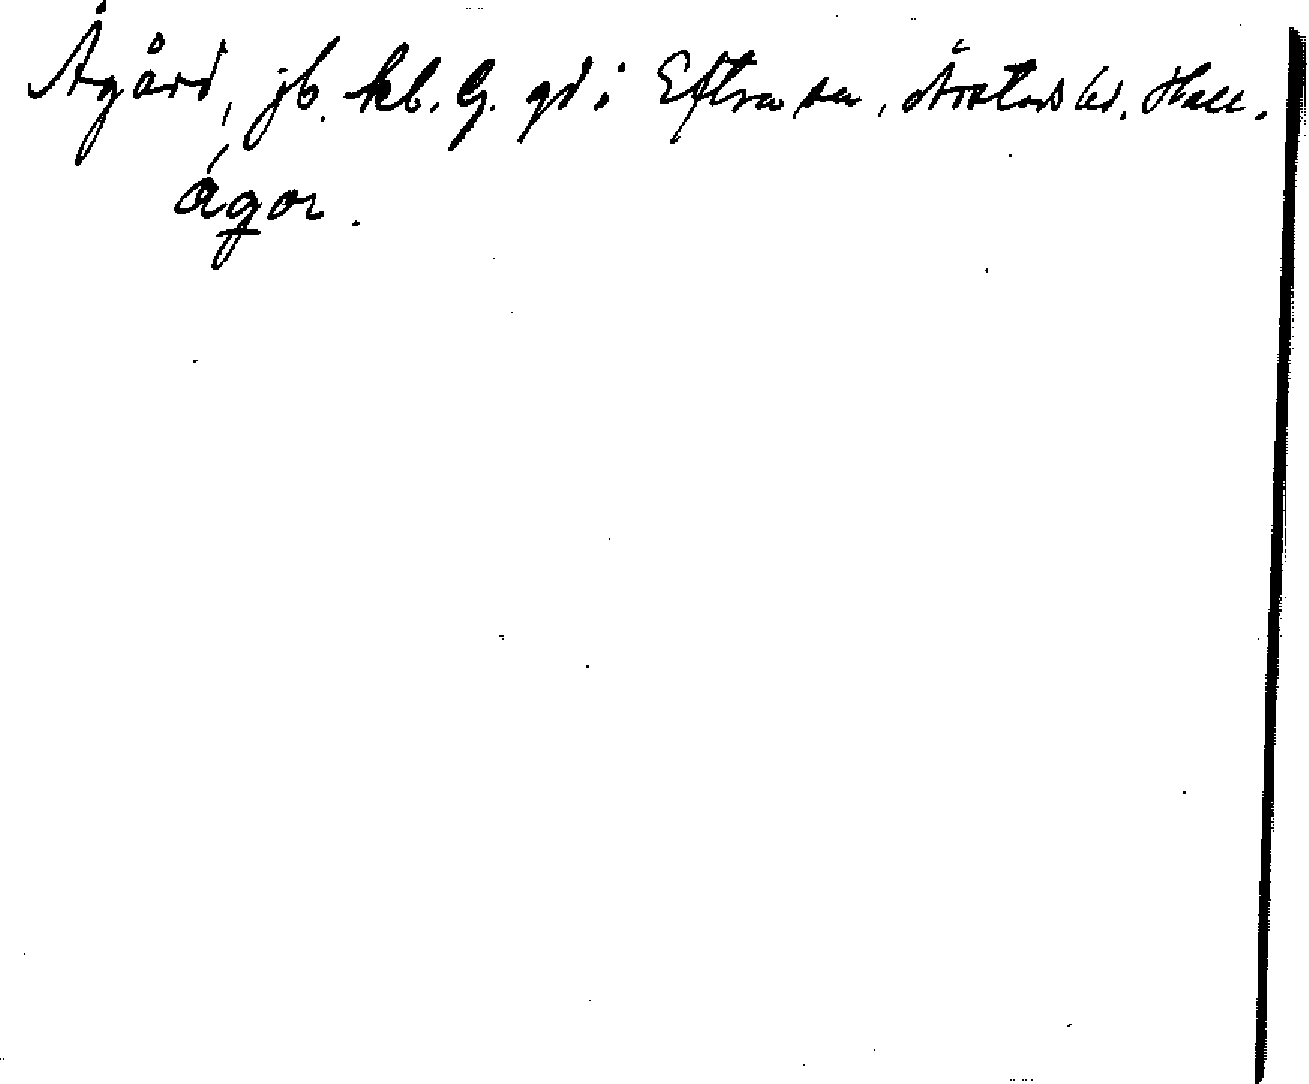 Ågård, jb. kb. G. gd i Eftra sn, Årstads hd. Hall.
ågor.